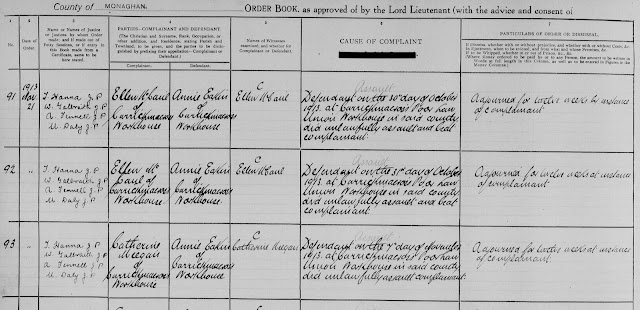 County of MONAGHAN.
ORDER BOOK, as approved of by the Lord Lieutenant (with the advice and consent of
No.
Date of Order.
Name or Names of Justice or Justices by whom Order made
PARTIES—COMPLAINANT AND DEFENDANT.
Complainant.
Defendant.
Names of Witnesses examined, and whether for Complainant or Defendant.
CAUSE OF COMPLAINT
PARTICULARS OF ORDER OR DISMISSAL
91
1913
Nov
21
T. Hanna J.P
W. Galbraith J.P
A. Fennell J.P
M. Daly J.P
Ellen McCaul
of
Carrickmacross
Workhouse
Annie Eakin
of
Carrickmacross
Workhouse
C
Ellen McCaul
Assault
Defendant on the 30th day of October
1913. at Carrickmacross Poor Law
Union Workhouse in said county
did unlawfully assault and beat
complainant.
Adjourned for twelve weeks by instance
of complainant
92
"
T. Hanna J.P
W. Galbraith J.P
A. Fennell J.P
M. Daly J.P
Ellen Mc
Caul of
Carrickmacross
Workhouse
Annie Eakin
of
Carrickmacross
Workhouse
C
Ellen McCaul
Assault
Defendant on the 31st day of October
1913. at Carrickmacross Poor Law
Union Workhouse in said county
did unlawfully assault and beat
complainant.
Adjourned for twelve weeks at instance
of complainant.
93
"
T. Hanna J.P
W. Galbraith J.P
A. Fennell J.P
M. Daly J.P
Catherine
Meegan
of
Carrickmacross
Workhouse
Annie Eakin
of
Carrickmacross
Workhouse
C
Catherine Meegan
Assault
Defendant on the day of November
1913. at Carrickmacross Poor Law
Union Workhouse in said county
did unlawfully assault and beat
complainant.
Adjourned for twelve weeks at instance
of complainant.